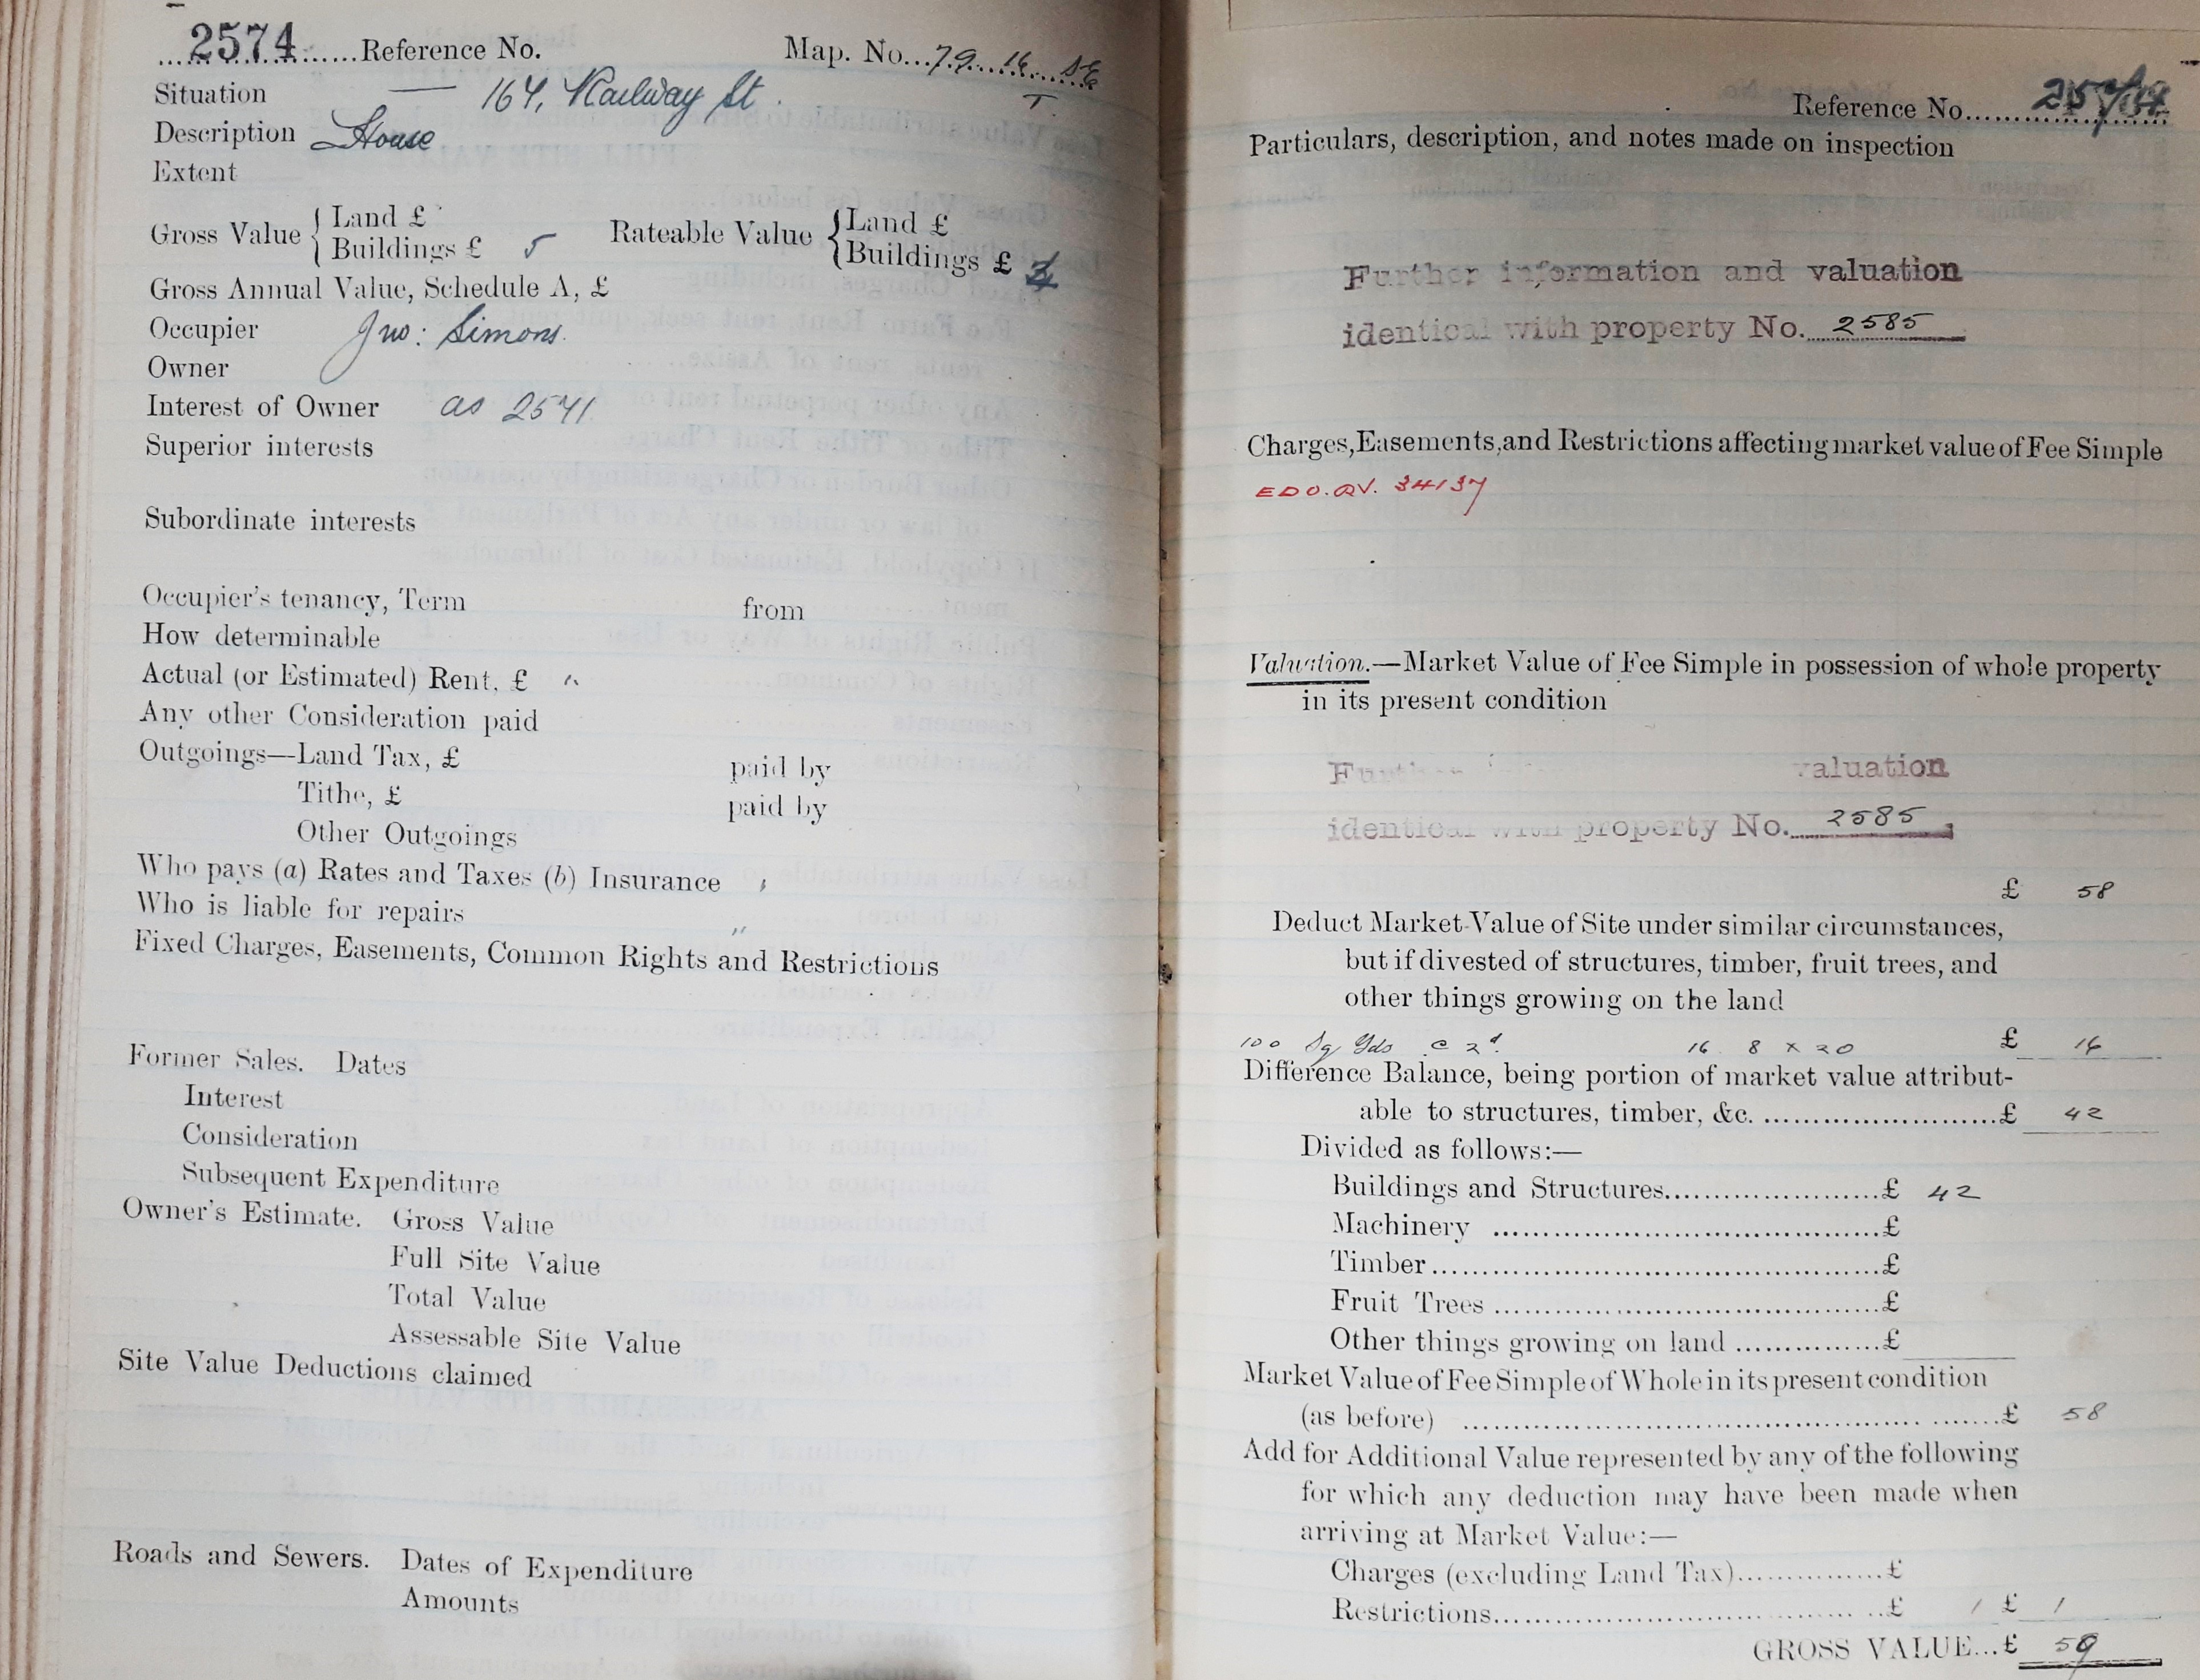 2574 Reference No. Map. No. 79 16 SE
T.
Situation — 164, Railway St.
Description House
Extent
Gross Value { Land £
Buildings £ 5
Rateable Value { Land £
Buildings £
Gross Annual Value, Schedule A, £
Occupier Jno: Simons.
Owner
Interest of Owner as 2541
Superior interests
Subordinate interests
Occupier's tenancy, Term from
How determinable
Actual (or Estimated) Rent, £ "
Any other Consideration paid
Outgoings—Land Tax, £ paid by
Tithe, £ paid by
Other Outgoings
Who pays (a) Rates and Taxes (b) Insurance
Who is liable for repairs "
Fixed Charges, Easements, Common Rights and Restrictions
Former Sales. Dates
Interest
Consideration
Subsequent Expenditure
Owner's Estimate. Gross Value
Full Site Value
Total Value
Assessable Site Value
Site Value Deductions claimed
Roads and Sewers. Dates of Expenditure
Amounts
Reference No.
Particulars, description, and notes made on inspection
Further information and valuation
identical with property No. 2585
Charges, Easements, and Restrictions affecting market value of Fee Simple
EDO. RV. 34137
Valuation.—Market Value of Fee Simple in possession of whole property
in its present condition
Further valuation
identical with property No. 2585
£ 58
Deduct Market Value of Site under similar circumstances,
but if divested of structures, timber, fruit trees, and
other things growing on the land
100 Sq Yds @ 2d. 16. 8 x 20 £ 16
Difference Balance, being portion of market value attribut-
able to structures, timber, &c. £ 42
Divided as follows:—
Buildings and Structures £ 42
Machinery £
Timber £
Fruit Trees £
Other things growing on land £
Market Value of Fee Simple of Whole in its present condition
(as before) £ 58
Add for Additional Value represented by any of the following
for which any deduction may have been made when
arriving at Market Value:—
Charges (excluding Land Tax) £
Restrictions £ 1 £ 1
GROSS VALUE...£ 59